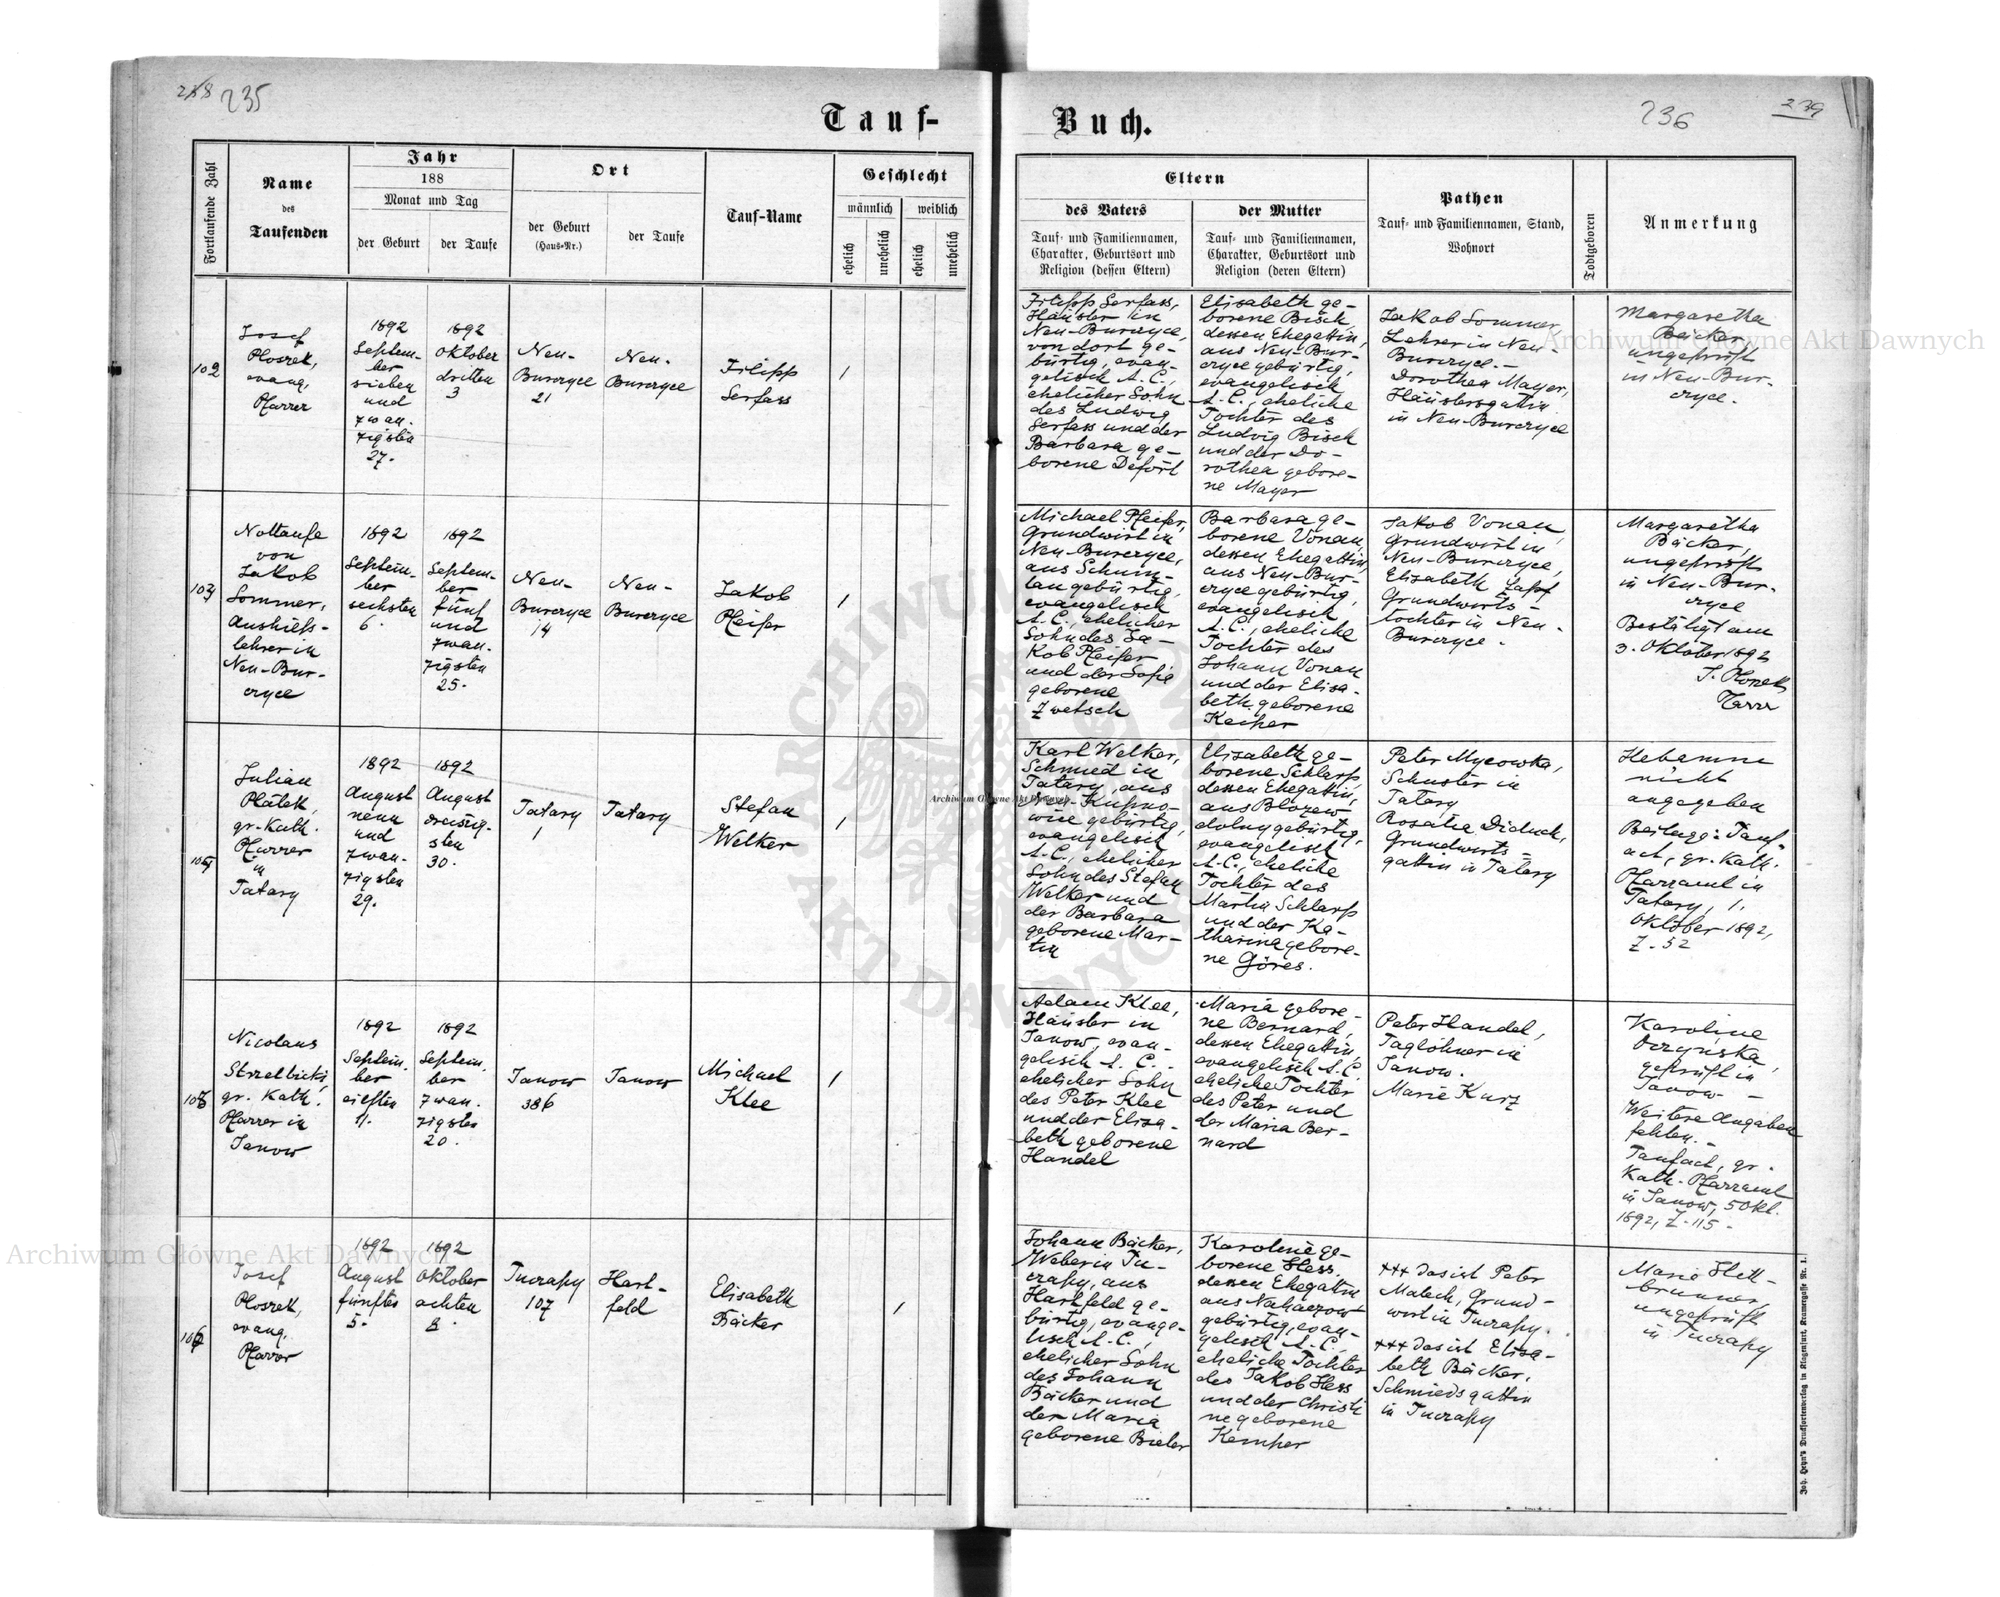 258 235
Tauf-
Buch.
236
239
Fortlaufende Zahl
Name
des
Taufenden
Jahr
188
Monat und Tag
der Geburt
der Taufe
Ort
der Geburt
(Haus-Nr.)
der Taufe
Tauf-Name
Geschlecht
männlich
weiblich
ehelich
unehelich
ehelich
unehelich
Eltern
des Vaters
Tauf- und Familiennamen,
Charakter, Geburtsort und
Religion (dessen Eltern)
der Mutter
Tauf- und Familiennamen,
Charakter, Geburtsort und
Religion (deren Eltern)
Pathen
Tauf- und Familiennamen, Stand,
Wohnort
Todtgeboren
Anmerkung
102
Josef
Ploszek,
evang.
Pfarrer
1892
Septem-
ber
sieben
und
zwan-
zigsten
27.
1892
Oktober
dritten
3
Neu-
Burczyce
21
Neu-
Burczyce
Filipp
Serfass
1
Filipp Serfass,
Häusler in
Neu-Burczyce,
von dort ge-
bürtig, evan-
gelisch A.C.,
ehelicher Sohn
des Ludwig
Serfass und der
Barbara ge-
borene Defort
Elisabeth ge-
borene Bisch
dessen Ehegattin,
aus Neu-Bur-
czyce gebürtig,
evangelisch
A.C., eheliche
Tochter des
Ludvig Bisch
und der Do-
rothea gebore-
ne Mayer
Jakob Sommer,
Lehrer in Neu-
Burczyce.-
Dorothea Mayer,
Häuslersgattin
in Neu-Burczyce
Margaretha
Bäcker,
ungeprüft
in Neu-Bur-
czyce.
103
Nottaufe
von
Jakob
Sommer,
Aushilfs-
lehrer in
Neu-Bur-
czyce
1892
Septem-
ber
sechsten
6.
1892
Septem-
ber
fünf
und
zwan-
zigsten
25.
Neu-
Burczyce
14
Neu-
Burczyce
Jakob
Pfeifer
1
Michael Pfeifer,
Grundwirt in
Neu-Burczyce,
aus Schum-
lau gebürtig,
evangelisch
A.C., ehelicher
Sohn des Ja-
kob Pfeifer
und der Sofie
geborene
Zwetsch
Barbara ge-
borene Vonau,
dessen Ehegattin,
aus Neu-Bur-
czyce gebürtig,
evangelisch
A.C., eheliche
Tochter des
Johann Vonau
und der Elisa-
beth geborene
Keiper
Jakob Vonau,
Grundwirt in
Neu-Burczyce,
Elisabeth Zapf
Grundwirts-
tochter in Neu-
Burczyce.
Margaretha
Bäcker,
ungeprüft
in Neu-Bur-
czyce
Bestätigt am
3. Oktober 1892
J. Ploszek
Pfarrer
104
Julian
Platek,
gr. kath.
Pfarrer
in
Tatary
1892
August
neun
und
zwan-
zigsten
29.
1892
August
dreissig-
sten
30.
Tatary
1
Tatary
Stefan
Welker
1
Karl Welker,
Schmied in
Tatary, aus
Neu-Kupno-
wice gebürtig,
evangelisch
A.C., ehelicher
Sohn des Stefan
Welker und
der Barbara
geborene Mar-
tin
Elisabeth ge-
borene Schlarp
dessen Ehegattin,
aus Blozew-
dolny gebürtig,
evangelisch
A.C., eheliche
Tochter des
Martin Schlarp
und der Ka-
tharina gebore-
ne Göres.
Peter Mycowka,
Schuster in
Tatary
Rosalie Diduch,
Grundwirts-
gattin in Tatary
Hebamme
nicht
angegeben
Beilage: Tauf-
act, gr. kath.
Pfarramt in
Tatary, 1.
Oktober 1892,
Z. 52
105
Nicolaus
Strzelbicki,
gr. kath.
Pfarrer in
Janow
1892
Septem-
ber
eilften
11.
1892
Septem-
ber
zwan-
zigsten
20.
Janow
386
Janow
Michael
Klee
1
Adam Klee,
Häusler in
Janow, evan-
gelisch A.C.
ehelicher Sohn
des Peter Klee
und der Elisa-
beth geborene
Handel
Maria gebore-
ne Bernard,
dessen Ehegattin,
evangelisch A.C.
eheliche Tochter
des Peter und
der Maria Ber-
nard
Peter Handel,
Taglöhner in
Janow.
Marie Kurz
Karoline
geprüft in
Janow -
Weitere Angaben
fehlen.-
Taufact, gr.
kath. Pfarramt
in Janow, 5 Okt.
1892, Z. 115.
106
Josef
Ploszek,
evang.
Pfarrer
1892
August
fünften
5.
1892
Oktober
achten
8
Tuczapy
107
Hart-
feld
Elisabeth
Bäcker
1
Johann Bäcker,
Weber in Tu-
czapy, aus
Hartfeld ge-
bürtig, evange-
lisch A.C.,
ehelicher Sohn
des Johann
Bäcker und
der Maria
geborene Bieler
Karoline ge-
borene Hess,
dessen Ehegattin
aus Nahaczow
gebürtig, evan-
gelisch A.C.,
eheliche Tochter
des Jakob Hess
und der Christi-
ne geborene
Kemper
+++ das ist Peter
Malech, Grund-
wirt in Tuczapy.
+++ das ist Elisa-
beth Bäcker,
Schmiedsgattin
in Tuczapy
Maria Hett-
brunner,
ungeprüft
in Tuczapy
Joh. Heyn's Drucksortenverlag in Klagenfurt, Kramergasse Nr. 1.
Archiwum Główne Akt Dawnych
Archiwum Główne Akt Dawnych
Archiwum Główne Akt Dawnych
ARCHIWUM GŁÓWNE
AKT DAWNYCH